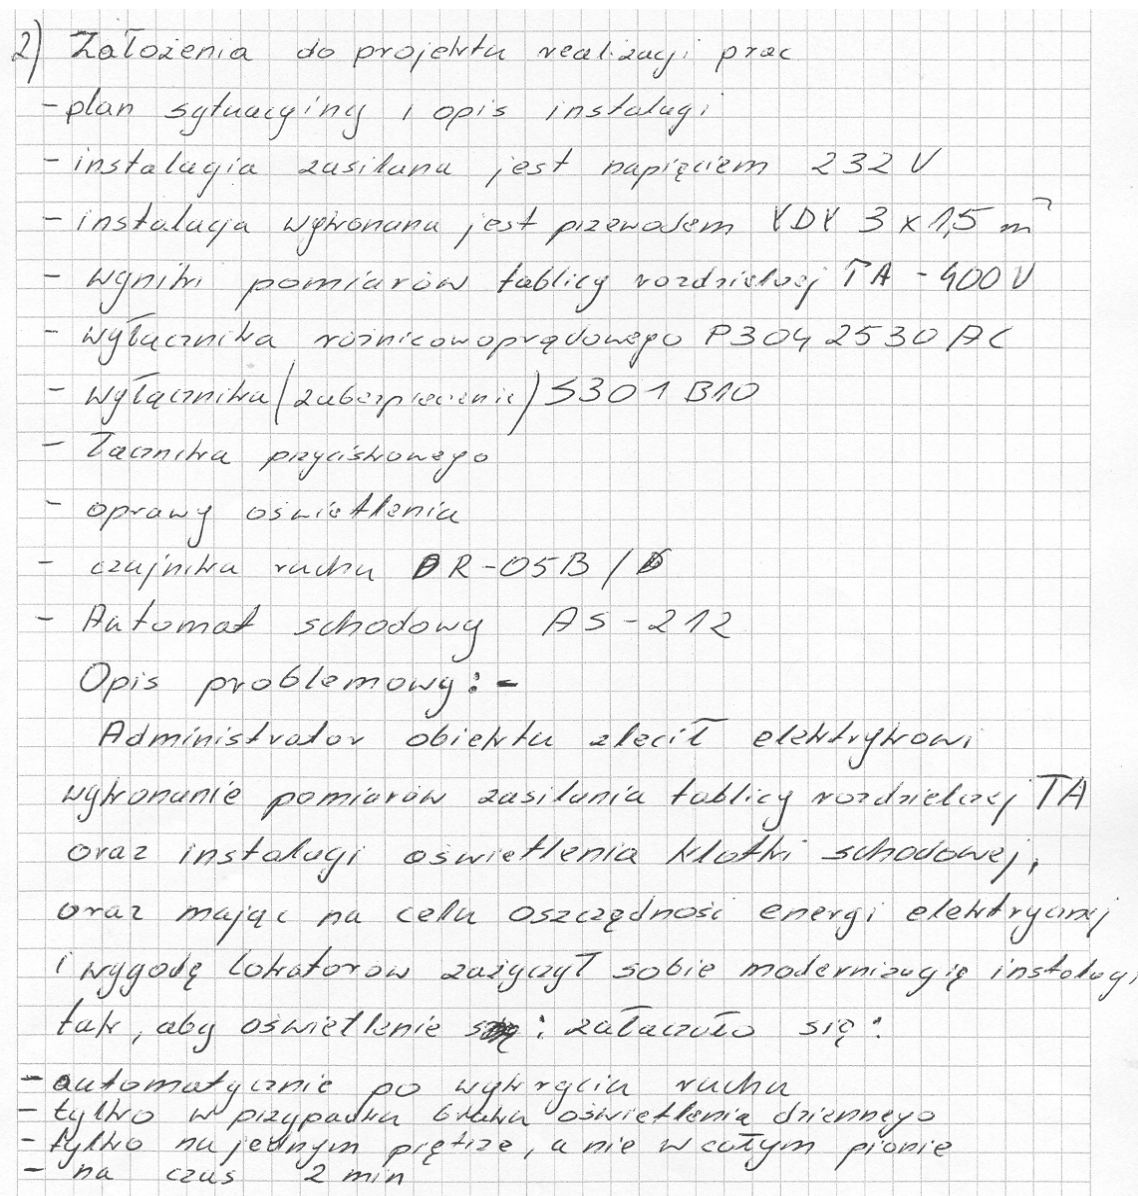 2) Założenia do projektu realizacji prac
- plan sytuacyjny i opis instalacji
- instalacja zasilana jest napięciem 232 V
- instalacja wykonana jest przewodem YDY 3 x 1,5 m²
- wyniki pomiarów tablicy rozdzielczej TA - 400 V
- wyłącznika różnicowoprądowego P304 25 30 AC
- wyłącznika (zabezpieczenie) S301 B10
- łącznika przyciskowego
- oprawy oświetlenia
- czujnika ruchu DR-05B / D
- Automat schodowy AS-212
Opis problemowy: -
Administrator obiektu zlecił elektrykowi
wykonanie pomiarów zasilania tablicy rozdzielczej TA
oraz instalacji oświetlenia klatki schodowej,
oraz mając na celu oszczędność energi elektrycznej
i wygodę lokatorow zażyczył sobie modernizację instalacji
tak, aby oświetlenie : załaczało się:
- automatycznie po wykryciu ruchu
- tylko w przypadku braku oświetlenia dziennego
- tylko na jednym piętrze, a nie w całym pionie
- na czas 2 min